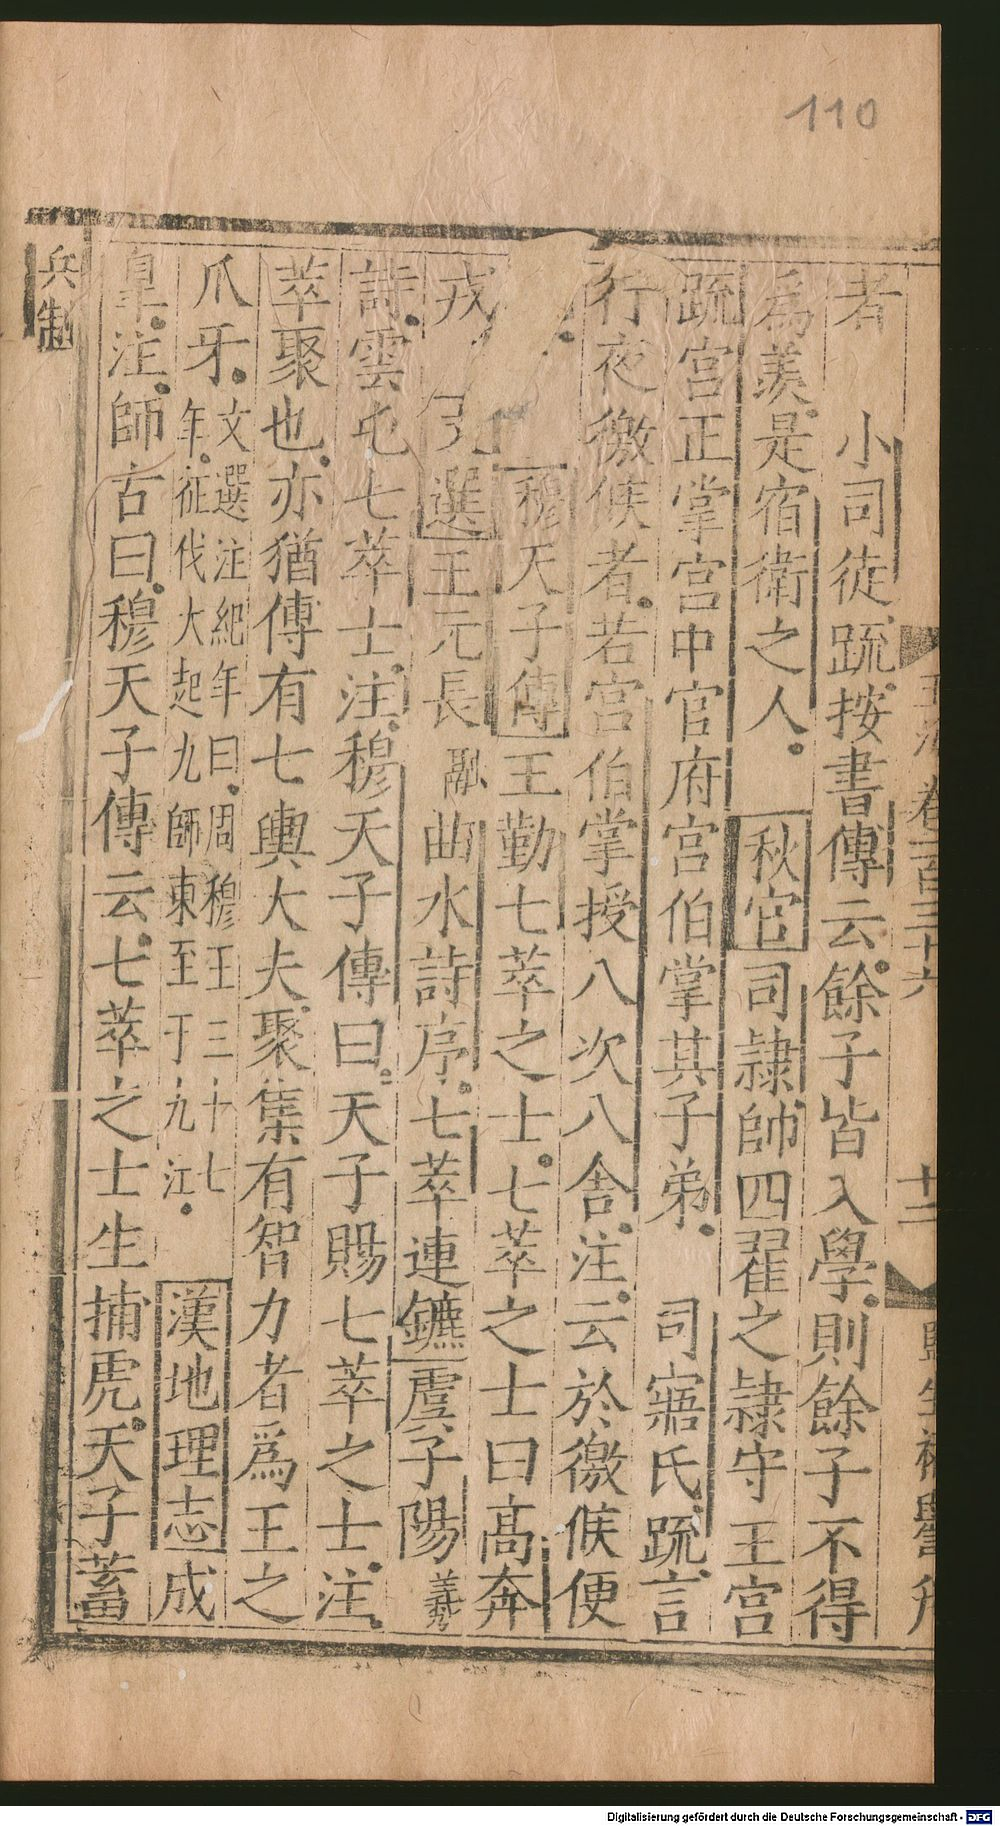 110
玉海卷一百三十六
十二
者　小司徒疏按書傳云餘子皆入學則餘子不得
為羨是宿衛之人　秋官司隷帥四翟之隷守王宮
疏宫正掌宫中官府宫伯掌其子弟　司寤氏疏言
行夜徼候者若宫伯掌授八次八舍注云於徼候便
穆天子傳王勤七萃之士七萃之士曰高奔
戎　選王元長融曲水詩序七萃連鑣虞子陽羲
詩雲屯七萃士注穆天子傳曰天子賜七萃之士注
萃聚也亦猶傳有七輿大夫聚集有智力者爲王之
爪牙文選注紀年曰周穆王三十七
年征伐大起九師東至于九江漢地理志成
臯注師古曰穆天子傳云七萃之士生捕虎天子蓄
兵制
Digitalisierung gefördert durch die Deutsche Forschungsgemeinschaft - DFG